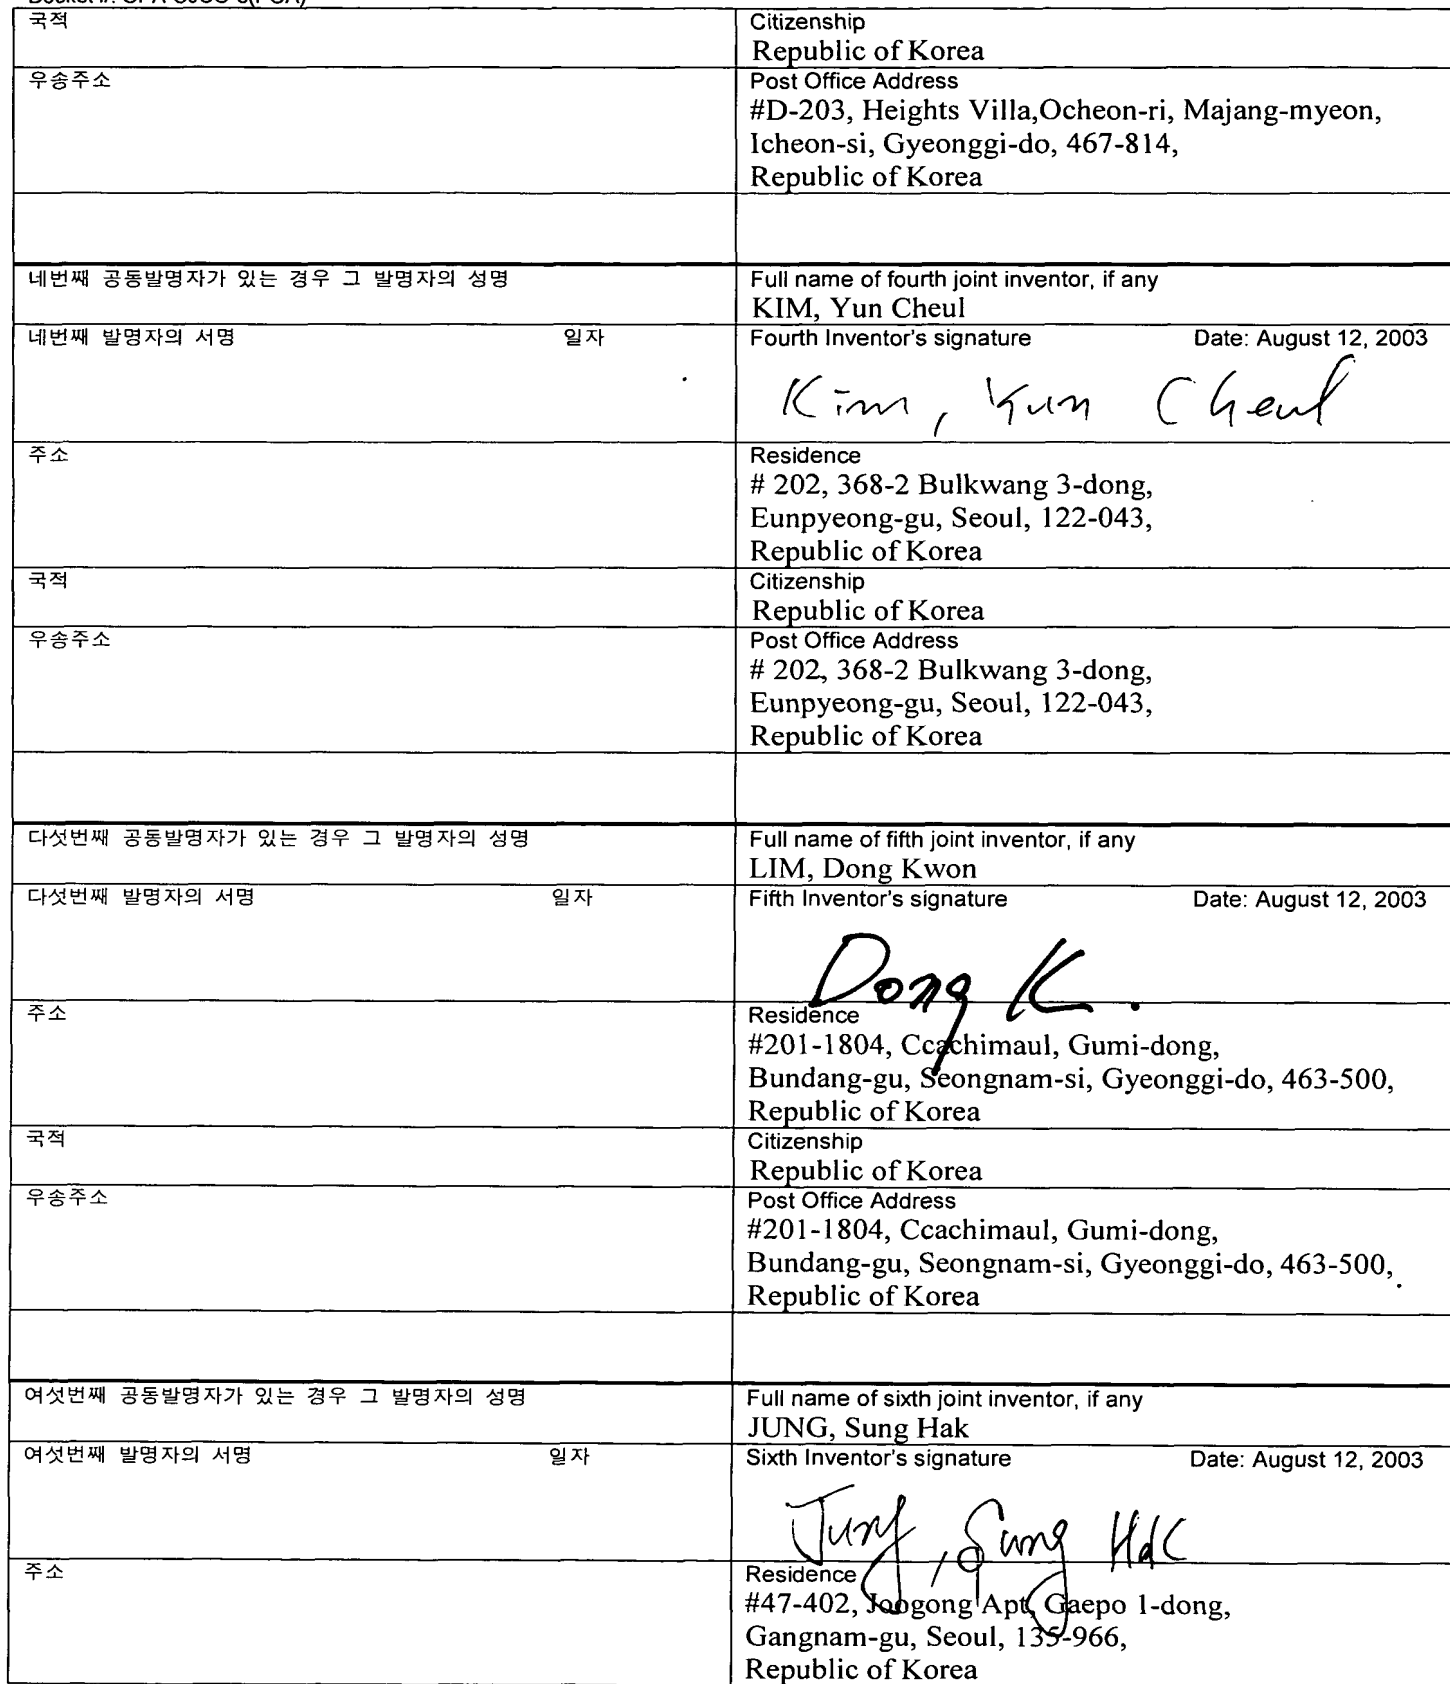 국적
Citizenship
Republic of Korea
우송주소
Post Office Address
#D-203, Heights Villa,Ocheon-ri, Majang-myeon,
Icheon-si, Gyeonggi-do, 467-814,
Republic of Korea
네번째 공동발명자가 있는 경우 그 발명자의 성명
Full name of fourth joint inventor, if any
KIM, Yun Cheul
네번째 발명자의 서명 일자
Fourth Inventor's signature Date: August 12, 2003
Kim, Yun Cheul
주소
Residence
# 202, 368-2 Bulkwang 3-dong,
Eunpyeong-gu, Seoul, 122-043,
Republic of Korea
국적
Citizenship
Republic of Korea
우송주소
Post Office Address
# 202, 368-2 Bulkwang 3-dong,
Eunpyeong-gu, Seoul, 122-043,
Republic of Korea
다섯번째 공동발명자가 있는 경우 그 발명자의 성명
Full name of fifth joint inventor, if any
LIM, Dong Kwon
다섯번째 발명자의 서명 일자
Fifth Inventor's signature Date: August 12, 2003
Dong K.
주소
Residence
#201-1804, Ccachimaul, Gumi-dong,
Bundang-gu, Seongnam-si, Gyeonggi-do, 463-500,
Republic of Korea
국적
Citizenship
Republic of Korea
우송주소
Post Office Address
#201-1804, Ccachimaul, Gumi-dong,
Bundang-gu, Seongnam-si, Gyeonggi-do, 463-500,
Republic of Korea
여섯번째 공동발명자가 있는 경우 그 발명자의 성명
Full name of sixth joint inventor, if any
JUNG, Sung Hak
여섯번째 발명자의 서명 일자
Sixth Inventor's signature Date: August 12, 2003
Jung, Sung
주소
Residence
#47-402, Joogong Apt, Gaepo 1-dong,
Gangnam-gu, Seoul, 135-966,
Republic of Korea